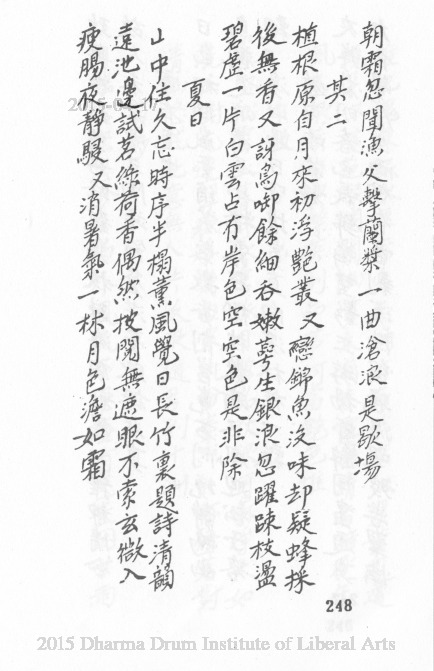 朝霜忽聞漁父擊蘭槳一曲滄浪是歇場
其二
植根原自月來初浮艷叢又戀錦魚沒味却疑蜂採
後無香又訝鳥啣餘細吞嫩蕚生銀浪忽躍踈枝盪
碧虛一片白雲占岸色空空色是非除
夏日
山中住久忘時序半榻薰風覺日長竹裏題詩清韻
遠池邊試茗綠荷香偶然披閱無遮眼不索玄微入
腸夜靜又消暑氣一林月色澹如霜
248
2015 Dharma Drum Institute of Liberal Arts